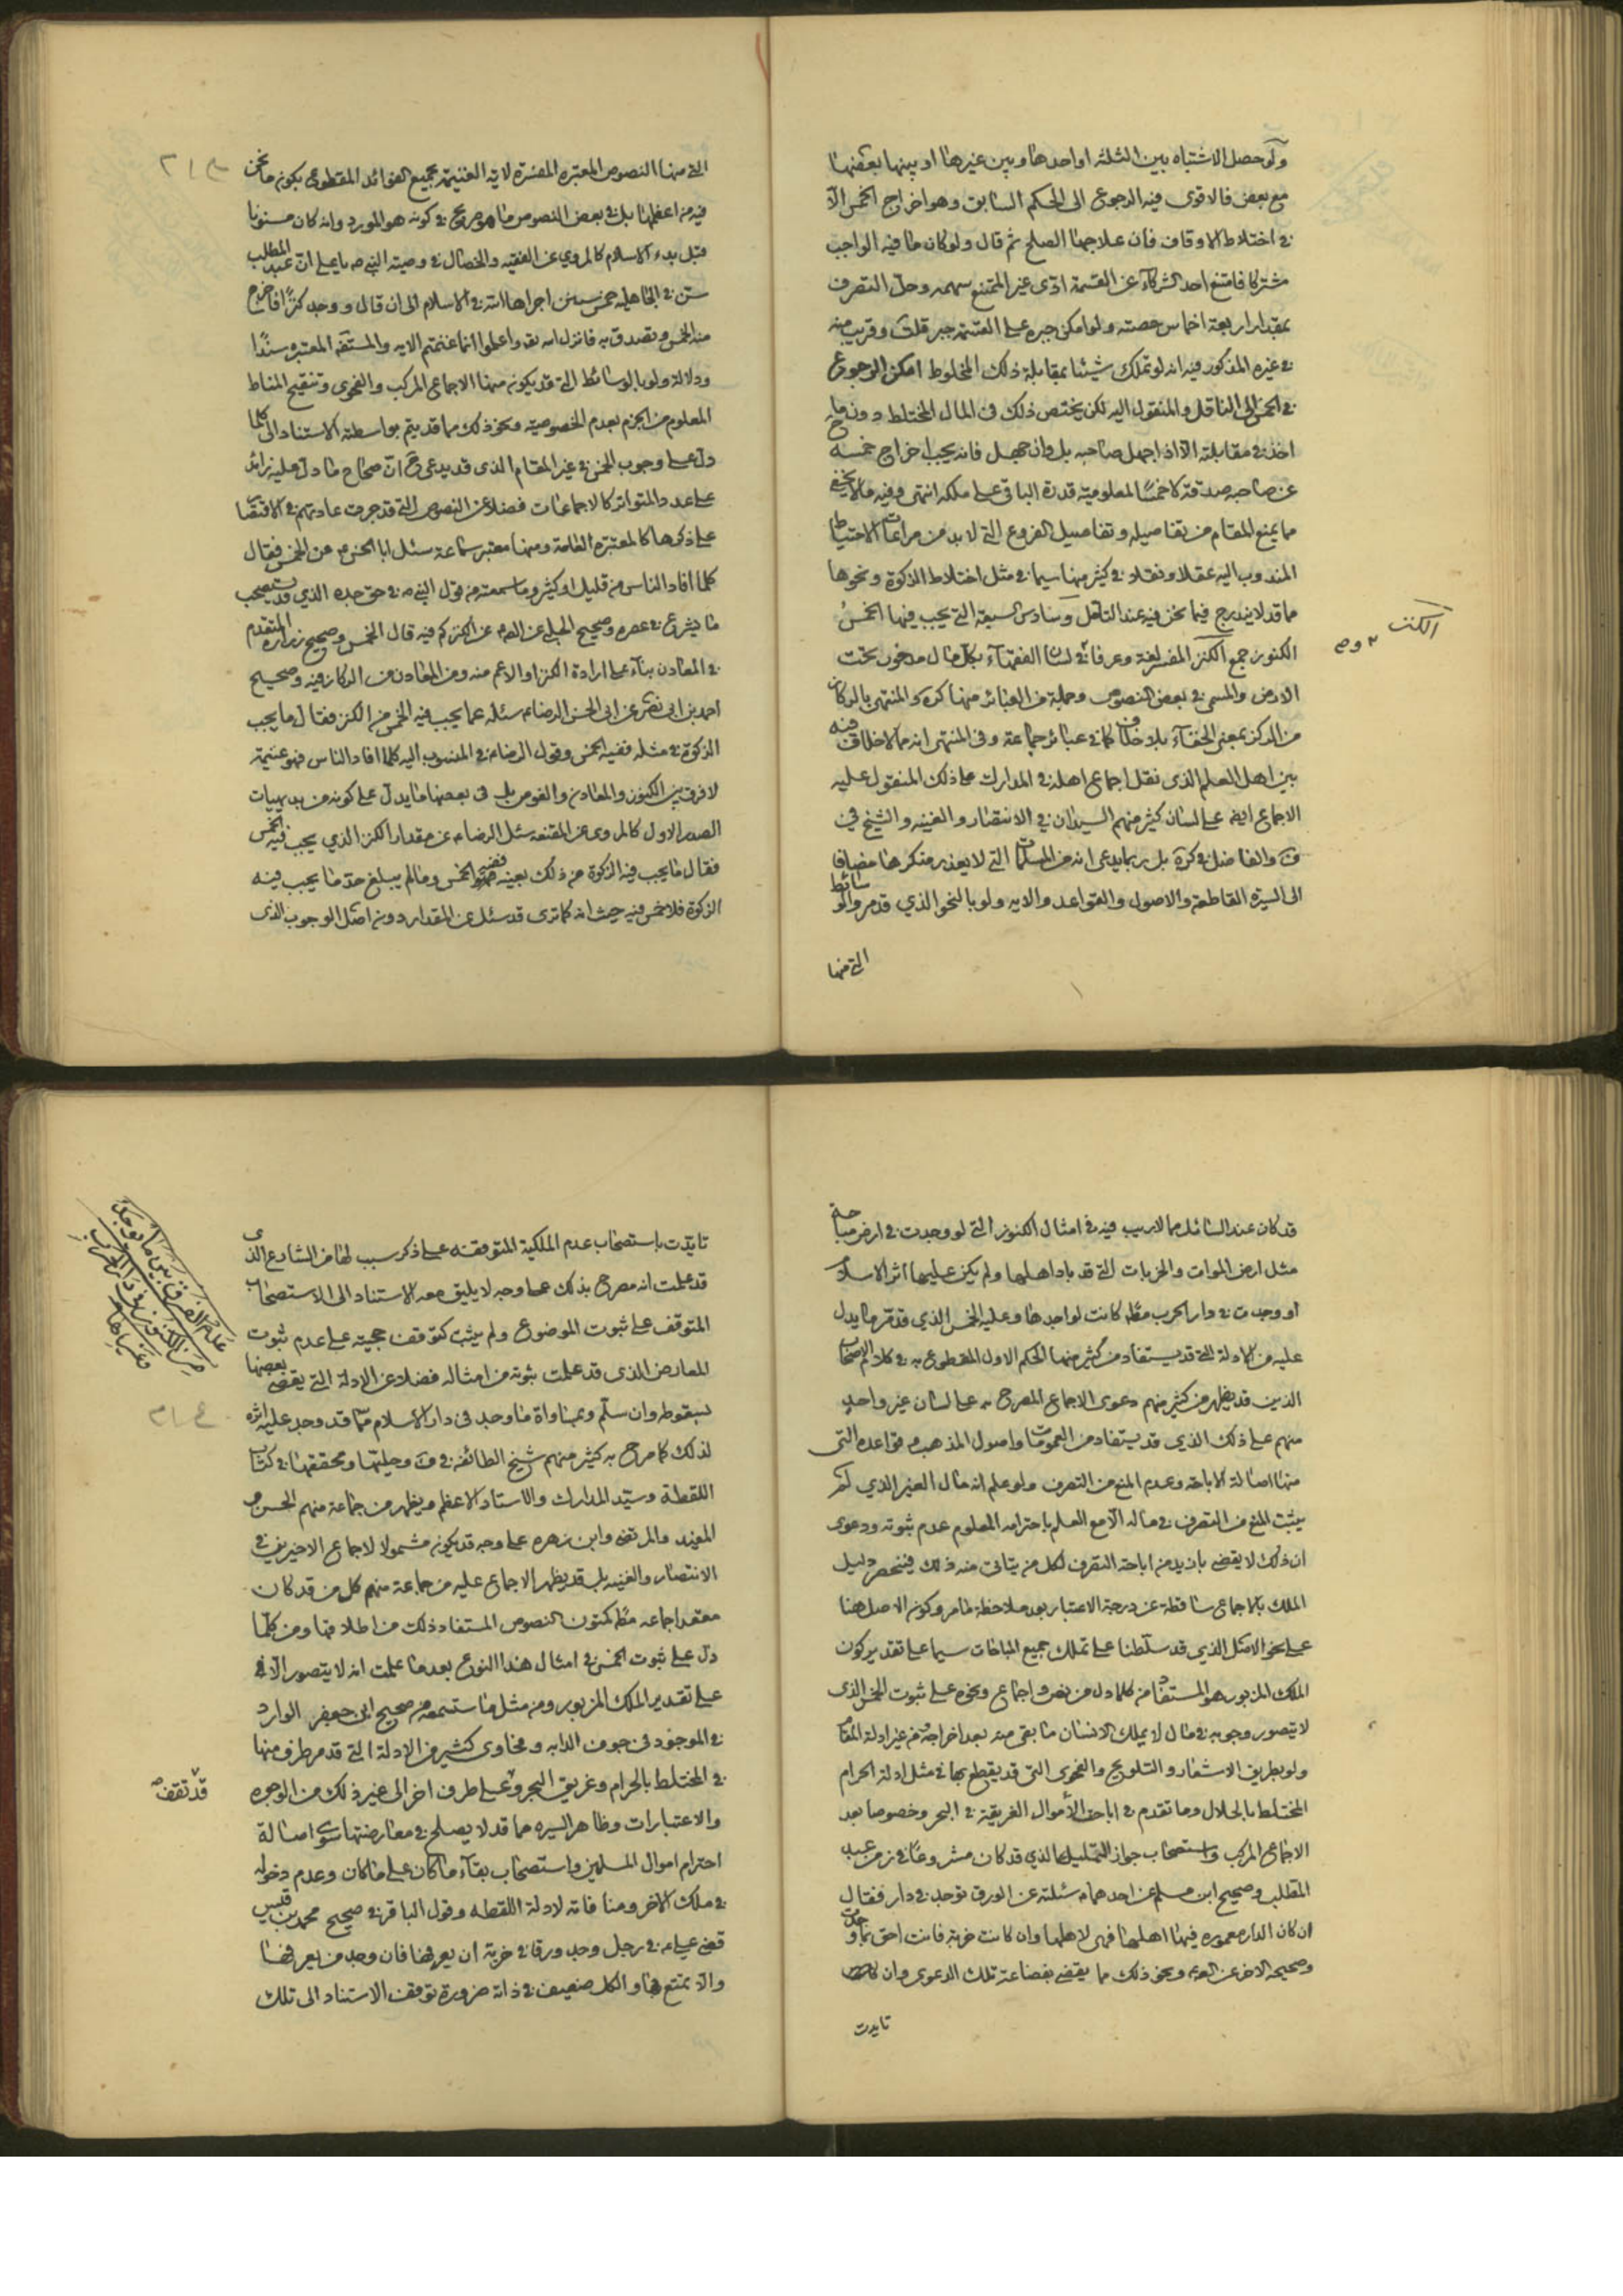 ولو حصل الاشتباه بين الثلثه او احدها وبين غيرها او بينها بعضها
مع بعض فالاقوى فيه الرجوع الى الحكم السابق وهو اخراج الخمس الا
في اختلاط الاوقاف فان علاجها الصلح ثم قال ولو كان ما فيه الواجب
مشتركا فامتنع احد الشركاء عن القسمة ادى غير الممتنع سهمه وحل التصرف
بمقدار اربعة اخماس حصته ولو امكن جبره على القسمة جبر قلت وقريب منه
في غيره المذكور فيه انه لو تملك شيئا بمقابلة ذلك المخلوط امكن الرجوع
في الخمس الى الناقل والمنقول اليه لكن يختص ذلك في المال المختلط دون ما
اخذ في مقابلته الا اذا جهل صاحبه بل وان جهل فانه يجب اخراج خمسه
عن صاحبه صدقة لا خمسا لمعلومية قدرة الباقي على ملكه انتهى وفيه ما لا يخفى
مما يمنع المقام من تفاصيله وتفاصيل الفروع التي لا بد من مراعات الاحتياط
المندوب اليه عقلا ونقلا في كثير منها سيما في مثل اختلاط الزكوة ونحوها
مما قد لا يندرج فيما نحن فيه عند التامل وسادس السبعة التي يجب فيها الخمس
الكنوز جمع الكنز المفسر لغة وعرفا في لسان الفقهاء بكل مال مدفون تحت
الكنز
الارض والمسمى في بعض النصوص وجملة من العبائر منها كره والمنتهى بالركاز
من الركز بمعنى الخفاء بلا خلاف كما في عبائر جماعة وفي المنتهى انه مما لا خلاف فيه
بين اهل العلم الذي نقل اجماع اهله في المدارك على ذلك المنقول عليه
الاجماع ايضا على لسان كثير منهم السيدان في الانتصار والغنيه والشيخ في
ف والفاضل في كرة بل ربما يدعى انه من المسلمات التي لا يعذر منكرها مضافا
الى السيرة القاطعة والاصول والقواعد والايه ولو بالنحو الذي قد مر والوسائط
التي منها
التي منها النصوص المعتبره المفسرة لايه الغنيمة بجميع الفوائد المقطوع بكون ما نحن
فيه من اعظمها بل في بعض النصوص ما هو صريح في كونه هو المورد وانه كان مسنونا
قبل بدء الاسلام كالمروي عن الفقيه والخصال في وصيته النبي ص يا علي ان عبد المطلب
سن في الجاهليه خمس سنن اجراها الله في الاسلام الى ان قال ووجد كنزا فاخرج
منه الخمس وتصدق به فانزل الله تعه واعلموا انما غنمتم الايه والمستفه المعتبره سندا
ودلالة ولو بالوسائط التي قد يكون منها الاجماع المركب والفحوى وتنقيح المناط
المعلوم من الجزم بعدم الخصوصيه ونحو ذلك مما قد يتم بواسطته الاستناد الى كلما
دل على وجوب الخمس في غير المقام الذي قد يدعى في ان صحاح ما دل عليه زائد
على عدد المتواتر كالاجماعات فضلا عن النصوص التي قد جرت عادتهم في الاقتصار
على ذكرها كالمعتبره العامة ومنها معتبر سماعة سئل ابا الحسن ع عن الخمس فقال
كلما افاد الناس من قليل او كثير وما سمعته من قول النبي ص في حق جده الذي قد يستصحب
ما يشرع في عصره وصحيح الحلبي عن الصم عن الكنز كم فيه قال الخمس وصحيح زرارة المتقدم
في المعادن بناء على ارادة الكنز او الاعم منه ومن المعادن من الركاز فيه وصحيح
احمد بن ابي نصر عن ابي الحسن الرضا ع سئله عما يجب فيه الخمس من الكنز فقال ما يجب
الزكوة في مثله ففيه الخمس وقول الرضا ع في المنسوب اليه كلما افاد الناس فهو غنيمة
لا فرق بين الكنوز والمعادن والغوص بل في بعضها ما يدل على كونه من بديهيات
الصدر الاول كالمروي عن المقنعه سئل الرضا ع عن مقدار الكنز الذي يجب فيه الخمس
فقال ما يجب فيه الزكوة من ذلك بعينه ففيه الخمس وما لم يبلغ حد ما يجب فيه
الزكوة فلا خمس فيه حيث انه كما ترى قد سئل عن المقدار دون اصل الوجوب الذي
قد كان عند السائل مما لا ريب فيه في امثال الكنوز التي لو وجدت في ارض مباحة
مثل ارض الموات والخربات التي قد باد اهلها ولم يكن عليها اثر الاسلام
او وجدت في دار الحرب مطه كانت لواجدها وعليه الخمس الذي قد مر ما يدل
عليه من الادلة التي قد يستفاد من كثير منها الحكم الاول المقطوع به في كلام الاصحاب
الذين قد يظهر من كثير منهم دعوى الاجماع المصرح به على لسان غير واحد
منهم على ذلك الذي قد يستفاد من العمومات واصول المذهب وقواعده التي
منها اصالة الاباحة وعدم المنع من التصرف ولو علم انه مال الغير الذي لم
يثبت المنع من التصرف في ماله الا مع العلم باحترامه المعلوم عدم ثبوته ودعوى
ان ذلك لا يقضي بازيد من اباحة التصرف لكل من يتاتى منه ذلك فينحصر دليل
الملك بالاجماع ساقطة عن درجة الاعتبار بعد ملاحظة ما مر وكون الاصل هنا
على نحو الاصل الذي قد سلطنا على تملك جميع المباحات سيما على تقدير كون
الملك المزبور هو المستفاد من كلما دل من نص واجماع ونحوه على ثبوت الخمس الذي
لا يتصور وجوبه في مال لا يملك الانسان ما بقي منه بعد اخراجه من غير ادلة المقام
ولو بطريق الاشعار والتلويح والفحوى التي قد يقطع بها في مثل ادلة الحرام
المختلط بالحلال وما تقدم في اباحة الأموال الغريقة في البحر وخصوصا بعد
الاجماع المركب واستصحاب جواز التمليك الذي قد كان مشروعا في زمن عبد
المطلب وصحيح ابن مسلم عن احدهما ع سئلته عن الورق توجد في دار فقال
ان كان الدار معموره فيها اهلها فهي لاهلها وان كانت خربة فانت احق بما وجدت
وصحيحه الاخر عن الصم ونحو ذلك مما يقضي بفضاعة تلك الدعوى وان
تايدت
تايدت باستصحاب عدم الملكية المتوقفه على ذكر سبب لها من الشارع الذي
قد علمت انه مصرح بذلك على وجه لا يليق معه الاستناد الى الاستصحاب
المتوقف على ثبوت الموضوع ولم يثبت كتوقف حجيته على عدم ثبوت
للمعارض الذي قد علمت ثبوته من امثاله فضلا عن الادلة التي يقضي بعضها
بسقوطه وان سلم وبمساواة ما وجد في دار الاسلام مما قد وجد عليه اثره
لذلك كما صرح به كثير منهم شيخ الطائفه في ف وحليها ومحققها في كتاب
اللقطة وسيد المدارك والاستاد الاعظم ويظهر من جماعة منهم الحسن و
المفيد والمرتضى وابن زهره على وجه قد يكون مشمولا لاجماع الاخيرين في
الانتصار والغنيه بل قد يظهر الاجماع عليه من جماعة منهم كل من قد كان
معقد اجماعه مطه كمتون النصوص المستفاد ذلك من اطلاقها ومن كلما
دل على ثبوت الخمس في امثال هذا النوع بعد ما علمت انه لا يتصور الا في
على تقدير الملك المزبور ومن مثل ما ستسمعه من صحيح ابن جعفر الوارد
في الموجود في جوف الدابه وفحاوى كثير من الادلة التي قد مر طرف منها
في المختلط بالحرام وغريق البحر وعلى طرف اخر الى غير ذلك من الوجوه
والاعتبارات وظاهر السيره مما قد لا يصلح في معارضتها سوى اصالة
احترام اموال المسلمين واستصحاب بقاء ما كان على ما كان وعدم دخوله
في ملك الاخر ومنافاته لادلة اللقطه وقول الباقر في صحيح محمد بن قيس
قضى علي ع في رجل وجد ورقا في خربة ان يعرفها فان وجد من يعرفها
والا تمتع بها والكل ضعيف في ذاته ضرورة توقف الاستناد الى تلك